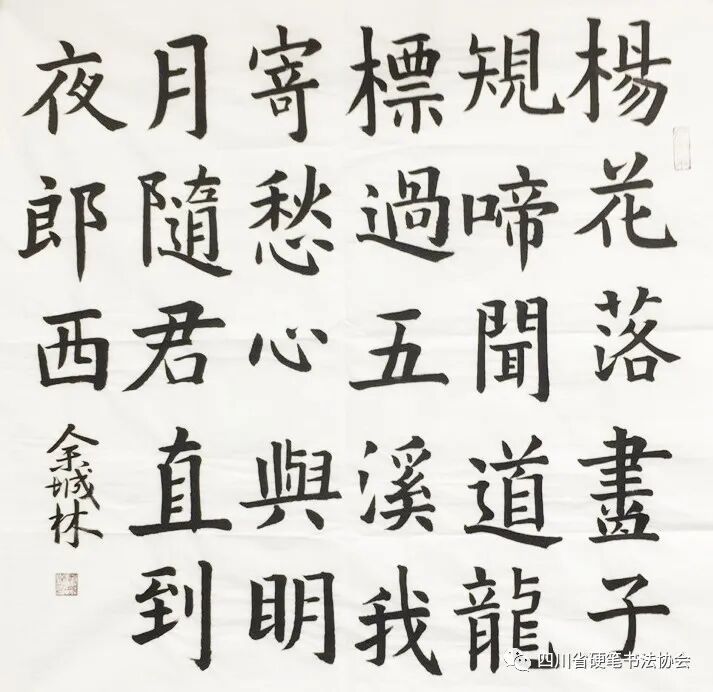 楊花落盡子
規啼聞道龍
標過五溪我
寄愁心與明
月隨君直到
夜郎西
余城林
四川省硬笔书法协会